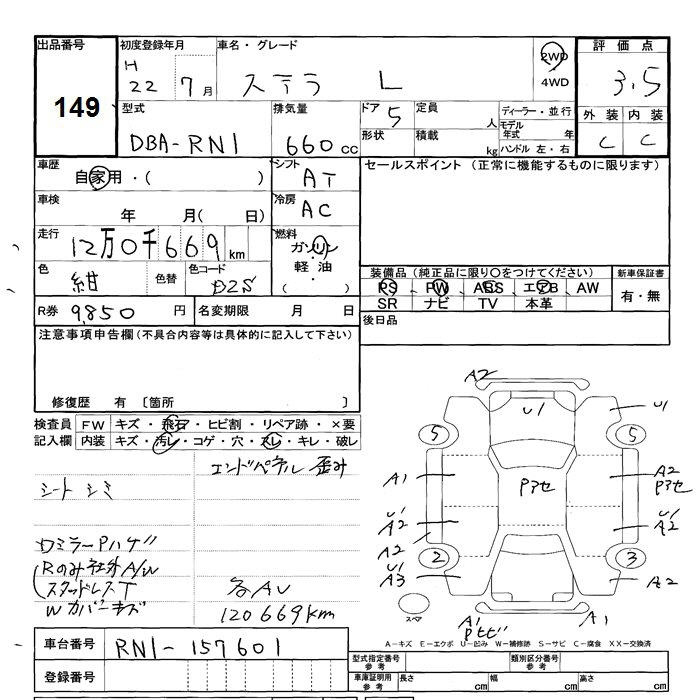 出品番号
149
初度登録年月
H
22 7月
車名・グレード
ステラ L
2WD
4WD
評価点
3.5
外装 内装
C C
型式
DBA-RN1
排気量
660cc
ドア
5
形状
定員
人
積載
kg
ディーラー・並行
モデル
年式 年
ハンドル 左・右
車歴
自家用・( )
シフト
AT
車検
年 月( 日)
冷房
AC
走行
12万0千669km
燃料
ガソリン
軽油
・
色
紺
色替
色コード
D2S
R券 9,850 円
名変期限 月 日
セールスポイント(正常に機能するものに限ります)
装備品(純正品に限り○をつけてください)
PS、PW、ABS、エアB、AW
SR ナビ TV 本革
新車保証書
有・無
後日品
注意事項申告欄(不具合内容等は具体的に記入して下さい)
修復歴 有〔箇所 〕
検査員 FW キズ・飛石・ヒビ割・リペア跡・×要
記入欄 内装 キズ・汚レ・コゲ・穴・スレ・キレ・破レ
エンドパネル歪み
シートシミ
ロミラーPハゲ
Rのみ社外A/W
スタッドレスT
Wカバーキズ
各AU
120669km
A2
U1
U1
5
5
A1
Pアセ
A2
Pアセ
U1
A2
U1
A2
A2
U1
A3
2
3
A2
スペア
A1
Pヒビ
A1
A-キズ E-エクボ U-凹み W-補修跡 S-サビ C-腐食 XX-交換済
車台番号 RN1-157601
登録番号
型式指定番号
参考
類別区分番号
参考
車庫証明用
参考
長さ cm 幅 cm 高さ cm